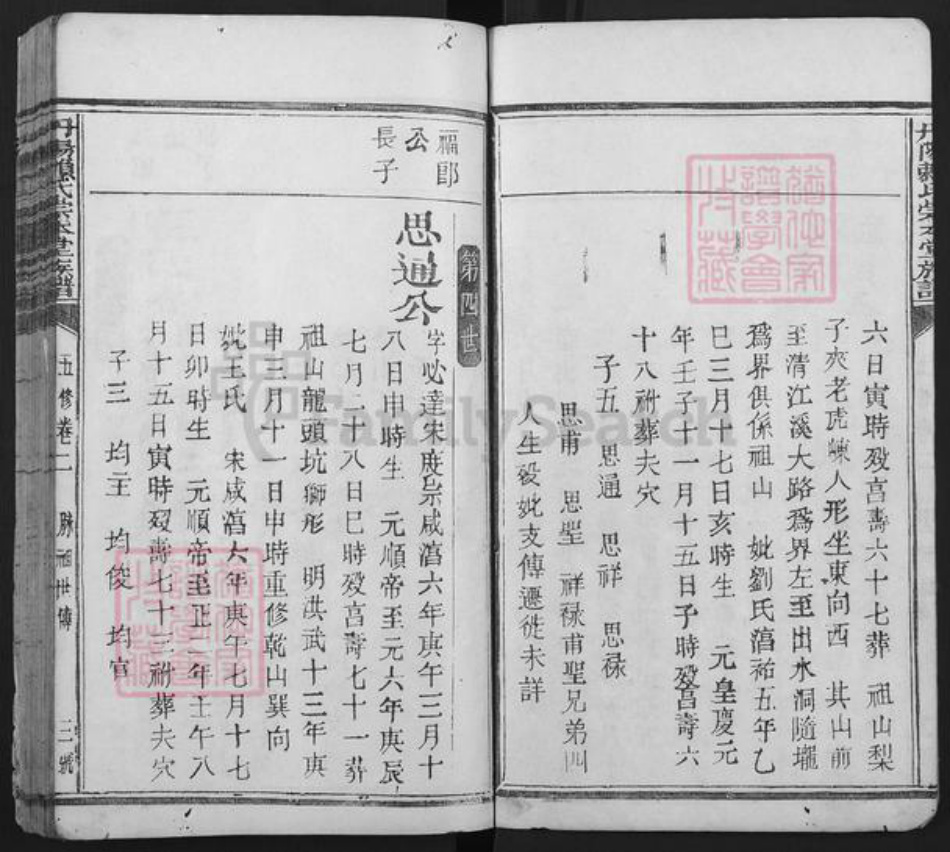 六日寅時歿亯壽六十七葬 祖山梨
子夾老虎㘓人形坐東向西 其山前
至清江溪大路爲界左至出水洞隨壠
爲界俱係祖山 妣劉氏滈祐五年乙
巳三月十七日亥時生 元皇慶元
年壬子十一月十五日子時歿亯壽六
十八祔葬夫穴
子五 思通 思祥 思祿
思甫 思聖 祥祿甫聖兄弟四
人生歿妣支傳遷徙未詳
第四世
福郎
公
長子
思通公
字必達宋度宗咸滈六年庚午三月十
八日申時生 元順帝至元六年庚辰
七月二十八日巳時歿亯壽七十一葬
祖山龍頭坑獅形 明洪武十三年庚
申三月十一日申時重修乾山巽向
妣王氏 宋咸滈六年庚午七月十七
日卯時生 元順帝至正二年壬午八
月十五日寅時歿壽七十三祔葬夫穴
子三 均主 均俊 均官
五修卷二
世傳
三號
FamilySearch